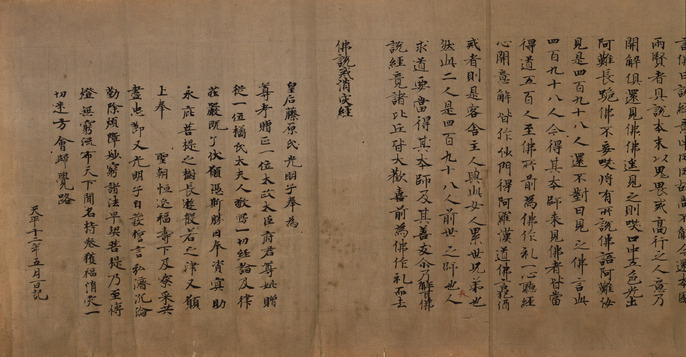 兩賢者具說本末以鬼畏戒高行之人意乃
開解俱還見佛佛遥見之則咲口中五色光出
阿難長跪佛不妄咲將有所說佛語阿難汝
見是四百九十八人還不對曰見之佛言此
四百九十八人今得其本師來見佛者皆當
得道五百人至佛所前為佛作礼一心聽經
心開意解皆作沙門得阿羅漢道佛
戒者則是客舍主人與此女人累世兄弟也
然此二人是四百九十八人前世之師也人
求道要當得其本師及其善友尒乃解佛
說經竟諸比丘皆大歡喜前為佛作礼而去
佛說戒消灾經
皇后藤原氏光明子奉為
尊考贈正一位太政太臣府君尊妣贈
從一位橘氏太夫人敬寫一切經論及律
莊嚴既了伏願憑斯勝因奉資冥助
永庇菩提之樹長遊般若之津又願
上奉 聖朝恒延福壽下及寮采共
盡忠節又光明子自發誓言弘濟沉淪
勤除煩障妙窮諸法早契菩提乃至傳
燈無窮流布天下聞名持卷獲福消灾一
切迷方會歸覺路
天平十二年五月一日記